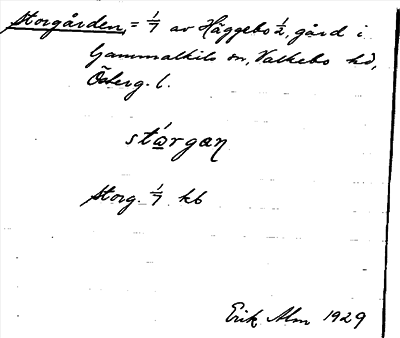 Storgården, = 1/7 av Häggebo 1/2, gård i
Gammalkils sn, Valkebo hd,
Österg. l.
stǫ́rgaɳ
Storg. 1/7 kb
Erik Alm 1929